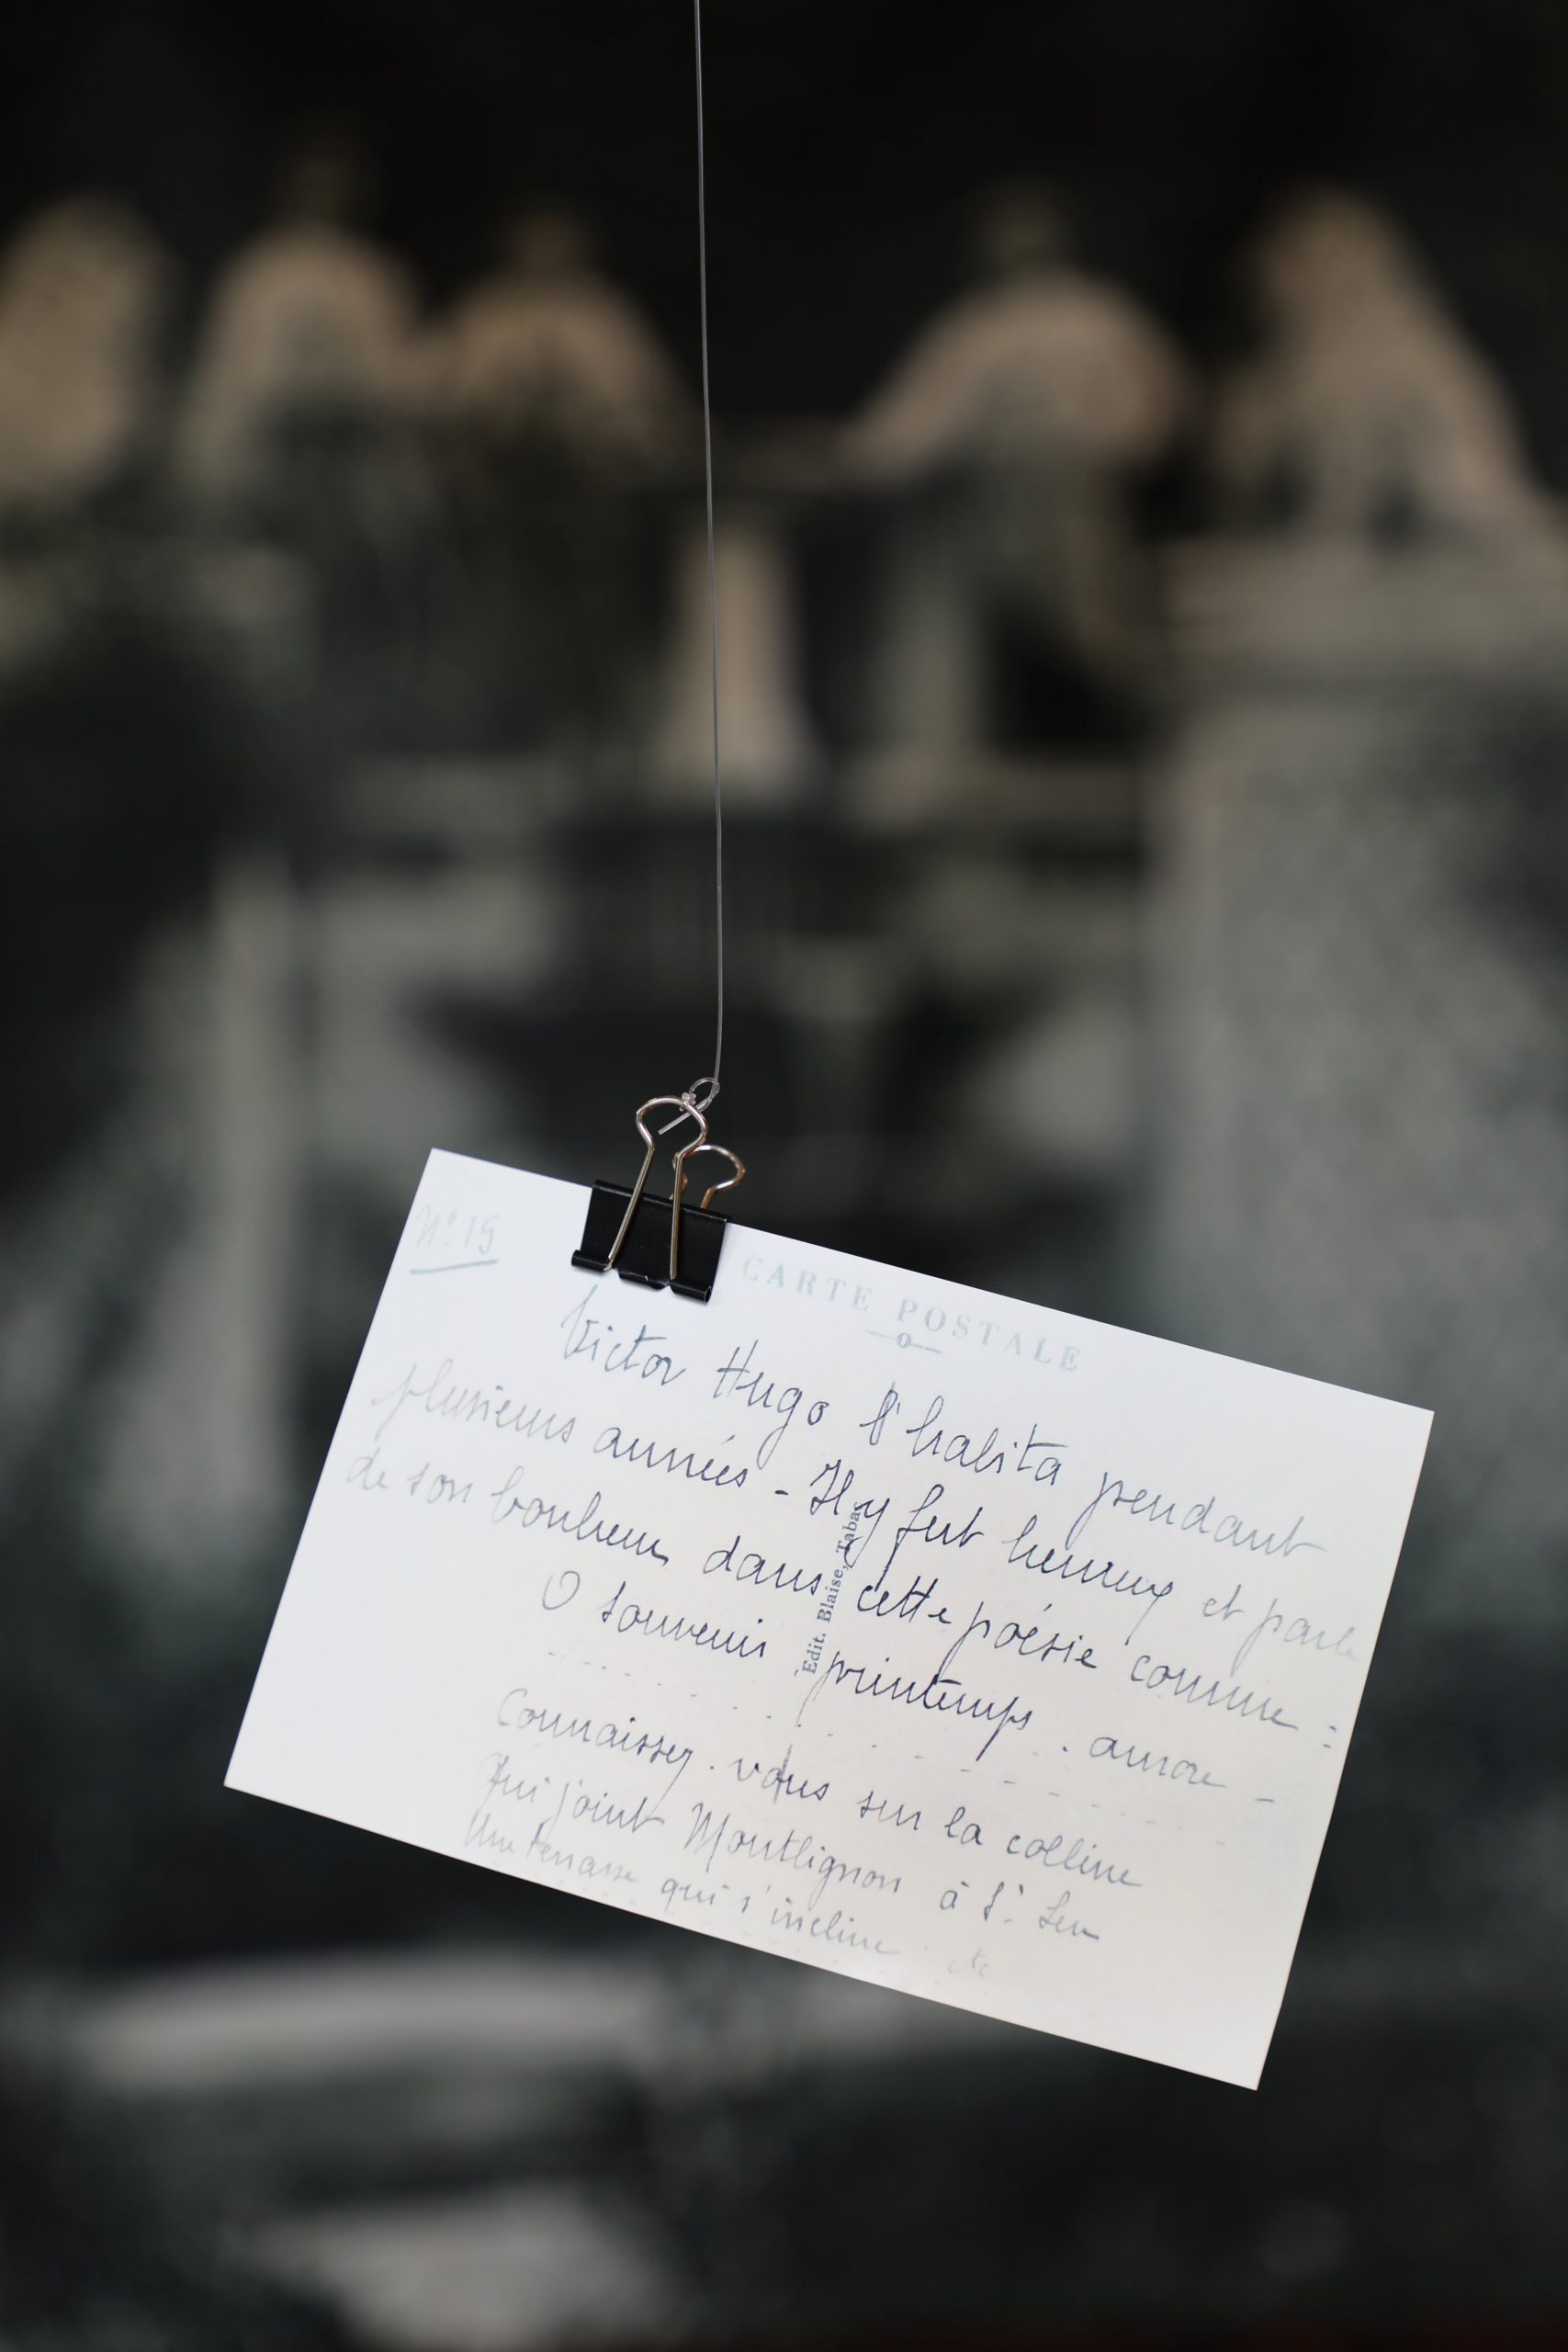 N° 19
CARTE POSTALE
Victor Hugo l'habita pendant
plusieurs années - Il y fut heureux et parle
de son bonheur dans cette poésie comme :
O souvenir printemps . aurore -
Connaissez-vous sur la colline
Qui joint Montlignon à St Leu
Une terrasse qui s'incline etc
Edit. Blaise, Tabac